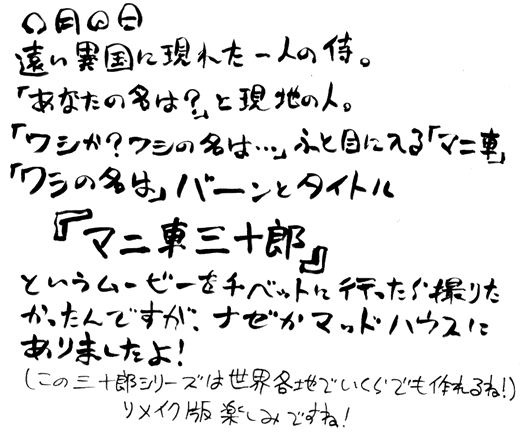 ○月○日
遠い異国に現れた一人の侍。
「あなたの名は?」と現地の人。
「ワシか?ワシの名は…」ふと目に入る「マニ車」
「ワシの名は」バーンとタイトル
『マニ車三十郎』
というムービーをチベットに行ったら撮りた
かったんですが、ナゼかマッドハウスに
ありましたよ!
(この三十郎シリーズは世界各地でいくらでも作れるね!)
リメイク版楽しみですね!